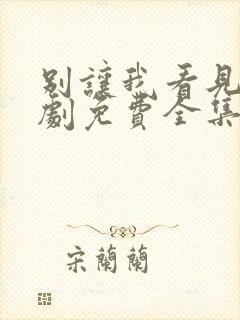 别讓我看見
劇免費全集
宋蘭蘭